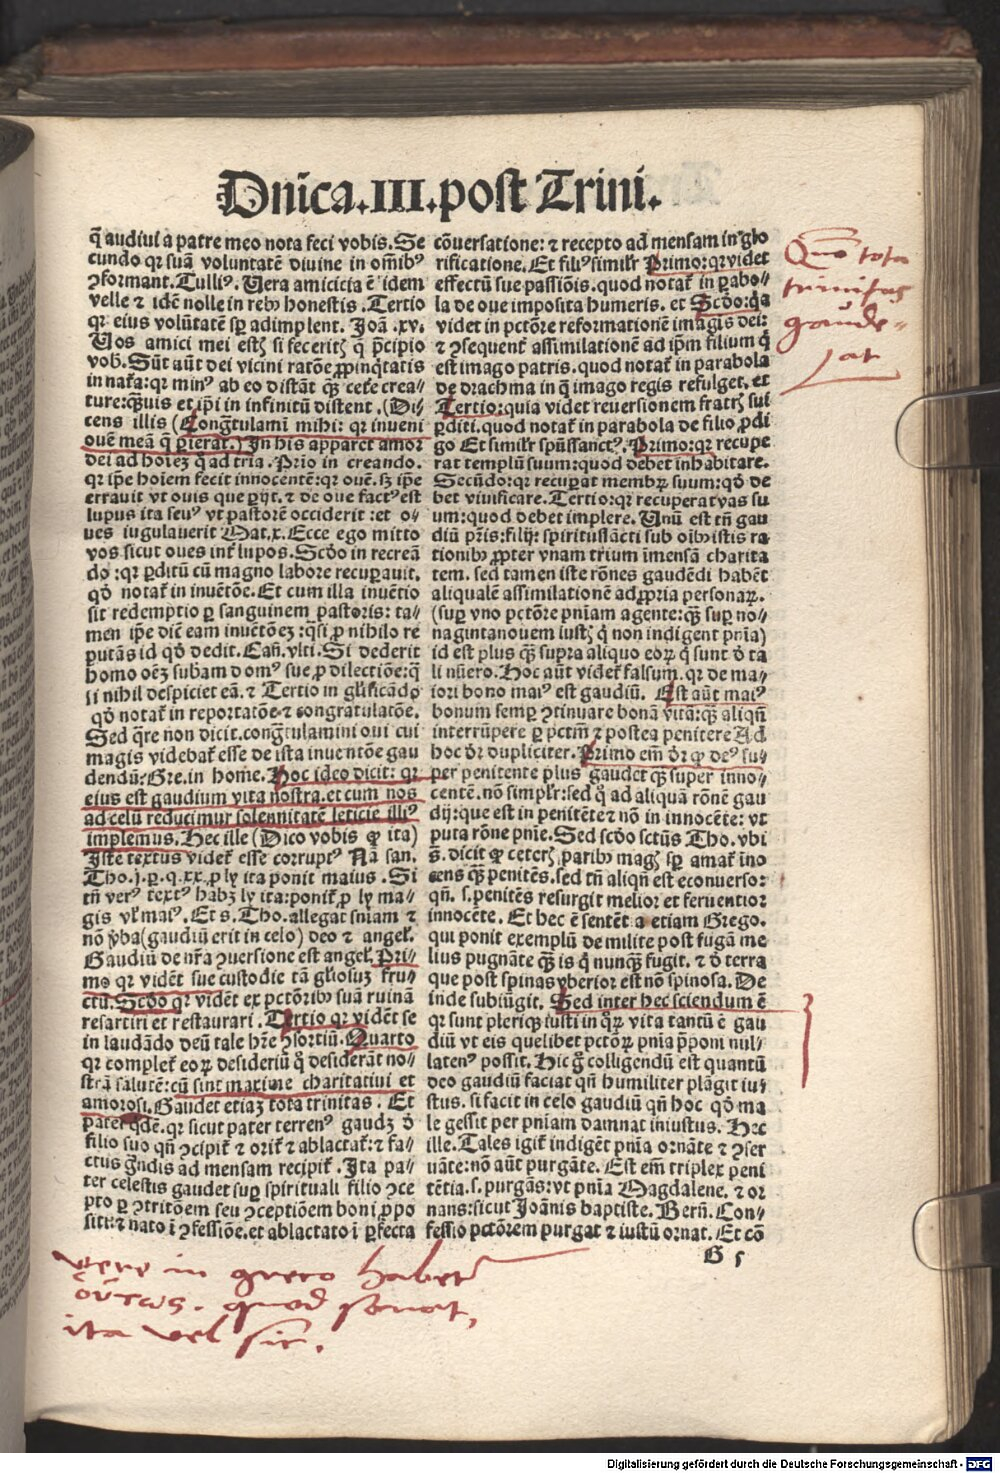 Dnĩca.III.post Trini.
q̃ audiui a patre meo nota feci vobis. Se
cundo qꝛ suã voluntatẽ diuine in om̃ibꝰ
ꝯformant. Tulliꝰ. Uera amicicia ẽ idem
velle ⁊ idẽ nolle in rebꝰ honestis. Tertio
qꝛ eius volũtatẽ sꝑ adimplent. Joã .xv.
Uos amici mei estꝭ si feceritꝭ q̃ p̃cipio
vob. Sũt aũt dei vicini ratõe ꝓpinq̃tatis
in nat̃a: qꝛ minꝰ ab eo distãt q̃ꝫ cet̃e crea⸗
ture: q̃ꝫuis et ip̃i in infinitũ distent. (Di⸗
cens illis (Congr̃tulami mihi: qꝛ inueni
ouẽ meã q̃ ꝑierat.) In his apparet amor
dei ad hoiẽꝫ q̃ ad tria. Prĩo in creando.
qꝛ ip̃e hoĩem fecit innocentẽ: qꝛ ouẽ. sꝫ ip̃e
errauit vt ouis que ꝑijt. ⁊ de oue factꝰ est
lupus ita seuꝰ vt pastorẽ occiderit: et o⸗
ues iugulauerit Mat.x. Ecce ego mitto
vos sicut oues int̃ lupos. Scd̃o in recreã
do: qꝛ ꝑditũ cũ magno labore recuꝑauit.
qd̃ notat̃ in inuẽtõe. Et cum illa inuẽtio
sit redemptio ꝑ sanguinem pastoris: ta⸗
men ip̃e diẽ eam inuẽtõeꝫ: q̃si ꝓ nihilo re
putãs id qd̃ dedit. Cañ. vlti. Si dederit
homo oẽꝫ subãm domꝰ sue ꝓ dilectiõe: q̃
si nihil despiciet eã. ⁊ Tertio in gl̃ificãdo
qd̃ notat̃ in reportatõe ⁊ congratulatõe.
Sed q̃re non dicit. congr̃tulamini oui cui
magis videbat̃ esse de ista inuentõe gau
dendũ: Gre. in home. Hoc ideo dicit: qꝛ
eius est gaudium vita nostra. et cum nos
ad celũ reducimur solennitatẽ leticie illiꝰ
implemus. Hec ille (Dico vobis ꝙ ita)
Iste textus videt̃ esse corruptꝰ Nã san.
Tho.j.p.q.xx.ꝓ ly ita ponit maius. Si
tñ verꝰ textꝰ habꝫ ly ita: ponit̃ ꝓ ly ma⸗
gis vl̃ maiꝰ. Et s. Tho. allegat sniam ⁊
nõ v̾ba (gaudiũ erit in celo) deo ⁊ angel̃.
Gaudiũ de nr̃a ꝯuersione est angel̃. Pri⸗
mo qꝛ vidẽt sue custodie tã gl̃iosuꝫ fru⸗
ctũ. Scd̃o qꝛ vidẽt ex pctõribꝰ suã ruinã
resartiri et restaurari. Tertio qꝛ vidẽt se
in laudãdo deũ tale hr̃e ꝯsortiũ. Quarto
qꝛ complet̃ eoꝝ desideriũ q̃ desiderãt no⸗
strã salutẽ: cũ sint maxime charitatiui et
amorosi. Gaudet etiaꝫ tota trinitas. Et
pater q̃dẽ. qꝛ sicut pater terrenꝰ gaudꝫ ð
filio suo qñ ꝯcipit̃ ⁊ orit̃ ⁊ ablactat̃: ⁊ fa⸗
ctus g̃ndis ad mensam recipit̃. Ita pa⸗
ter celestis gaudet suꝑ spirituali filio ꝯce
pto ꝑ ꝯtritõem seu ꝯceptiõem boni ꝓpo
siti: ⁊ nato ĩ ꝯfessiõe. et ablactato ĩ ꝑfecta
cõuersatione: ⁊ recepto ad mensam in glo
rificatione. Et filiꝰ simil̃r Primo: qꝛ videt
effectũ sue passiõis. quod notat̃ in ꝑabo⸗
la de oue imposita humeris. et Scd̃o: q̃a
videt in pctõre reformationẽ imagĩs dei:
⁊ ꝯsequent̃ assimilationẽ ad ip̃m filium q̃
est imago patris. quod notat̃ in parabola
de drachma in q̃ imago regis refulget. et
Tertio: quia videt reuersionem fratrꝭ sui
ꝑditi. quod notat̃ in parabola de filio ꝓdi
go Et simil̃r sp̃ussanctꝰ. Primo: qꝛ recupe
rat templũ suum: quod debet inhabitare.
Secũdo: qꝛ recuꝑat membꝝ suum: qd̃ de
bet viuificare. Tertio: qꝛ recuperat vas su
um: quod debet implere. Unũ est tñ gau
diũ pr̃is: filij: spiritussãcti sub oĩbꝰ istis ra
tionibꝰ ꝓpter vnam trium ĩmensã charita
tem. sed tamen iste rõnes gaudẽdi habẽt
aliqualẽ assimilationẽ ad ꝓpria personaꝝ.
(suꝑ vno pctõre pniam agente: q̃ꝫ suꝑ no⸗
nagintanouem iustꝭ q̃ non indigent pnĩa)
id est plus q̃ꝫ supra aliquo eoꝝ q̃ sunt ð ta
li nũero. Hoc aũt videt̃ falsum. qꝛ de ma⸗
iori bono maiꝰ est gaudiũ. Est aũt maiꝰ
bonum semꝑ ꝯtinuare bonã vitã: q̃ꝫ aliqñ
interrũpere ꝑ pctm̃ ⁊ postea penitere Ad
hoc ðr dupliciter. Primo em̃ ðr ꝙ deꝰ su⸗
per penitente plus gaudet q̃ꝫ super inno⸗
centẽ. nõ simplr̃: sed q̃ ad aliquã rõnẽ gau
dij: que est in penitẽte ⁊ nõ in innocẽte: vt
puta rõne pnĩe. Sed scd̃o sctũs Tho. vbi
s̃. dicit ꝙ ceterꝭ paribꝰ magꝭ sꝑ amat̃ ĩno
cens q̃ꝫ penitẽs. sed tñ aliqñ est econuerso:
qñ. s. penitẽs resurgit melior et feruentior
innocẽte. Et hec ẽ sentẽt a etiam Grego.
qui ponit exemplũ de milite post fugam me
lius pugnãte q̃ꝫ is q̃ nunq̃ꝫ fugit. ⁊ ð terra
que post spinas vberior est nõ spinosa. De
inde subiũgit. Sed inter hec sciendum ẽ
qꝛ sunt pleriqꝫ iusti in q̃ꝝ vita tantũ ẽ gau
diũ vt eis quelibet pctõꝝ pnĩa p̃poni nul⸗
latenꝰ possit. Hic g̃ colligendũ est quantũ
deo gaudiũ faciat qñ humiliter plãgit iu⸗
stus. si facit in celo gaudiũ qñ hoc qd̃ ma
le gessit per pnĩam damnat iniustus. Hec
ille. Tales igit̃ indigẽt pnĩa ornãte ⁊ ꝯser
uãte: nõ aũt purgãte. Est em̃ triplex peni
tẽtia. s. purgãs: vt pnĩa Magdalene. ⁊ or
nans: sicut Joãnis baptiste. Berñ. Con⸗
fessio pctõrem purgat ⁊ iustũ ornat. Et cõ
G 5
Quõ tota
trinitas
gaude⸗
at
vere in greco habetʳ
οὕτως. quod sonat,
ita vel sic.
Digitalisierung gefördert durch die Deutsche Forschungsgemeinschaft - DFG